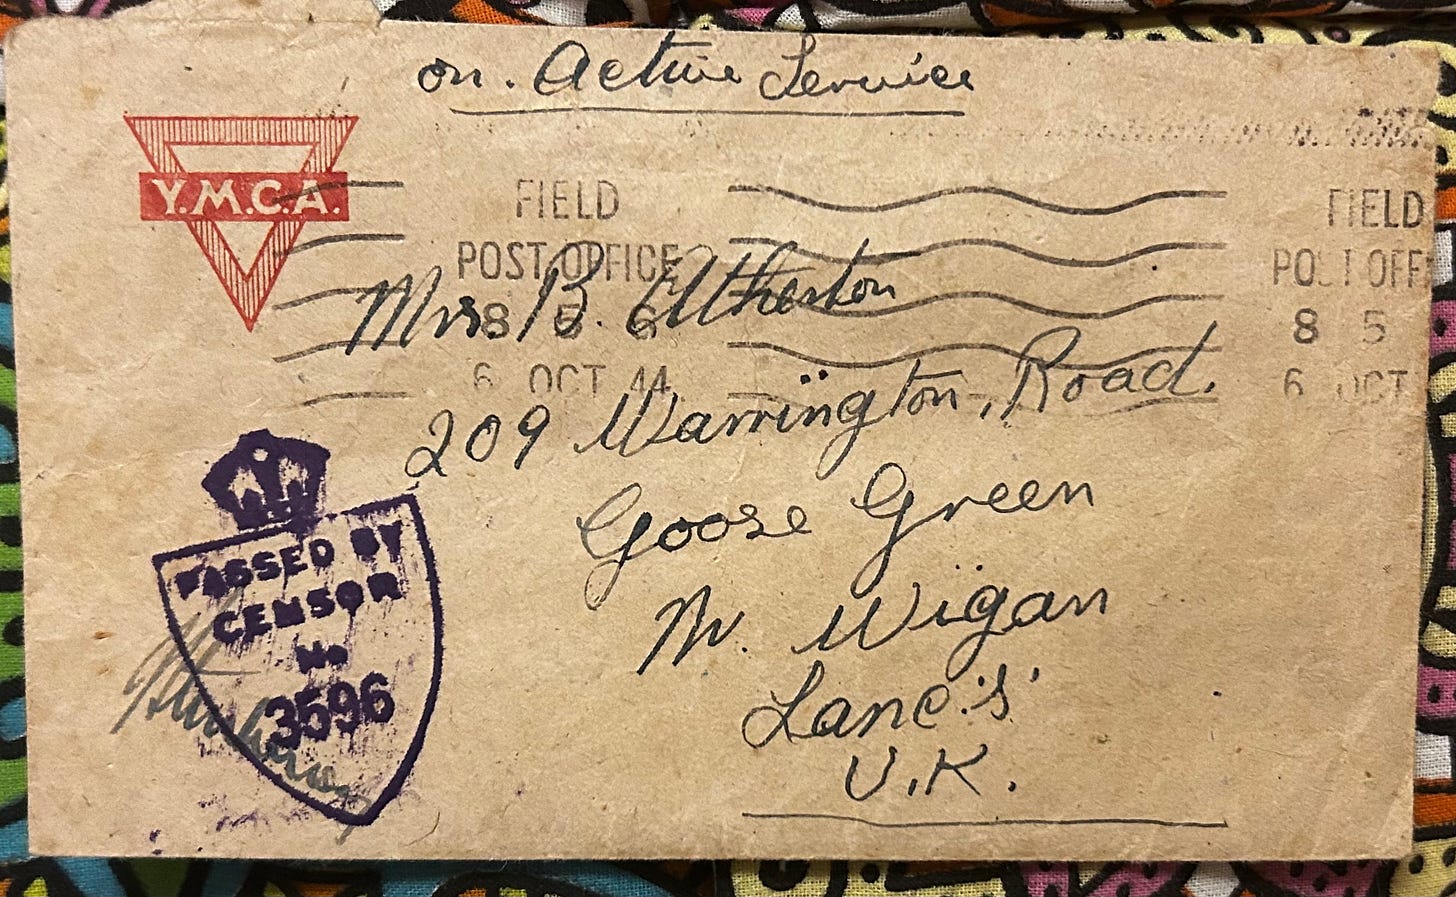 on. Active Service
Y.M.C.A.
FIELD
POST OFFICE
8 5 6
6 OCT 44
FIELD
POST OFF
8 5
6 OCT
Mrs. B. Atherton
209 Warrington, Road.
Goose Green
Nr. Wigan
Lanc's'
U.K.
PASSED BY
CENSOR
No
3596